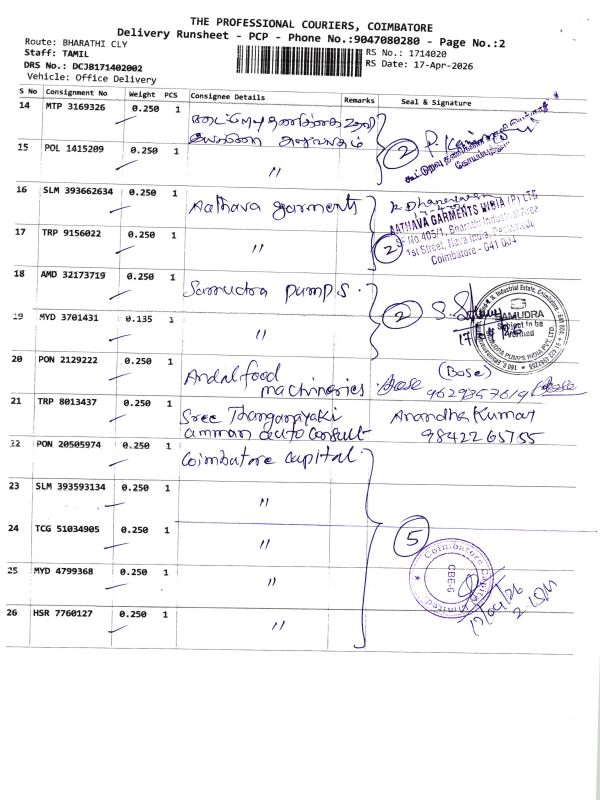 THE PROFESSIONAL COURIERS, COIMBATORE
Delivery Runsheet - PCP - Phone No.:9047080280 - Page No.:2
Route: BHARATHI CLY
Staff: TAMIL
DRS No.: DCJB171402002
Vehicle: Office Delivery
RS No.: 1714020
RS Date: 17-Apr-2026
S No Consignment No Weight PCS Consignee Details Remarks Seal & Signature
14 MTP 3169326 0.250 1
15 POL 1415209 0.250 1 〃 2
16 SLM 393662634 0.250 1 Aathava garments
AATHAVA GARMENTS INDIA (P) LTD
SF No.405/1, Bharathi Industrial Area
1st Street, Nava India,
Coimbatore - 641 004
17 TRP 9156022 0.250 1 〃 2
18 AMD 32173719 0.250 1 Samudra pumps. 2
19 MYD 3701431 0.135 1 〃
SAMUDRA
Subject to be
Verified
20 PON 2129222 0.250 1 Andal food machineries. Bose (Bose) 9629357619
21 TRP 8013437 0.250 1 Sree Thanganayaki amman auto consult Anandha Kumar 9842265755
22 PON 20505974 0.250 1 Coimbatore capital.
23 SLM 393593134 0.250 1 〃
24 TCG 51034905 0.250 1 〃 5
25 MYD 4799368 0.250 1 〃
Coimbatore Capital Limited
CBE-6
17/04/26
26 HSR 7760127 0.250 1 〃